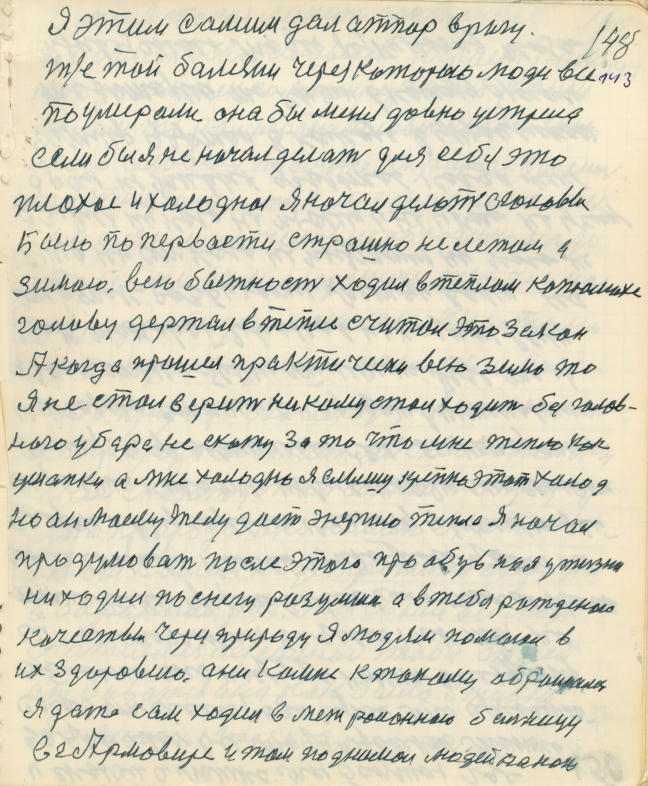 148
Я этим самим дал аттор врагу.
143
т/е той балезни через каторою люди все
поумерали она бы меня довно
если бы я не начал делат для себя это
плохое и холодное Я начал делоть с головы
Было по первасти страшно не летом а
зимою. всю бытность ходил в теплом
голову держал в тепле считол это закон
А когда прошел практически всю зиму то
Я не стал верить никому стал ходит без голов-
ного убара не скажу за то что мне тепло как
у шапки а мне холодно я слышу крепко этот холод
но он моему телу дает энергию тепла Я начал
продумоват после этого про обув
ходил по снегу разумши а в тебя
качества через природу Я людям помогал в
их здоровию. они ко мне к такому обращались
Я даже сам ходил в меж районною балницу
в г Армовире и там поднимал людей на ноги